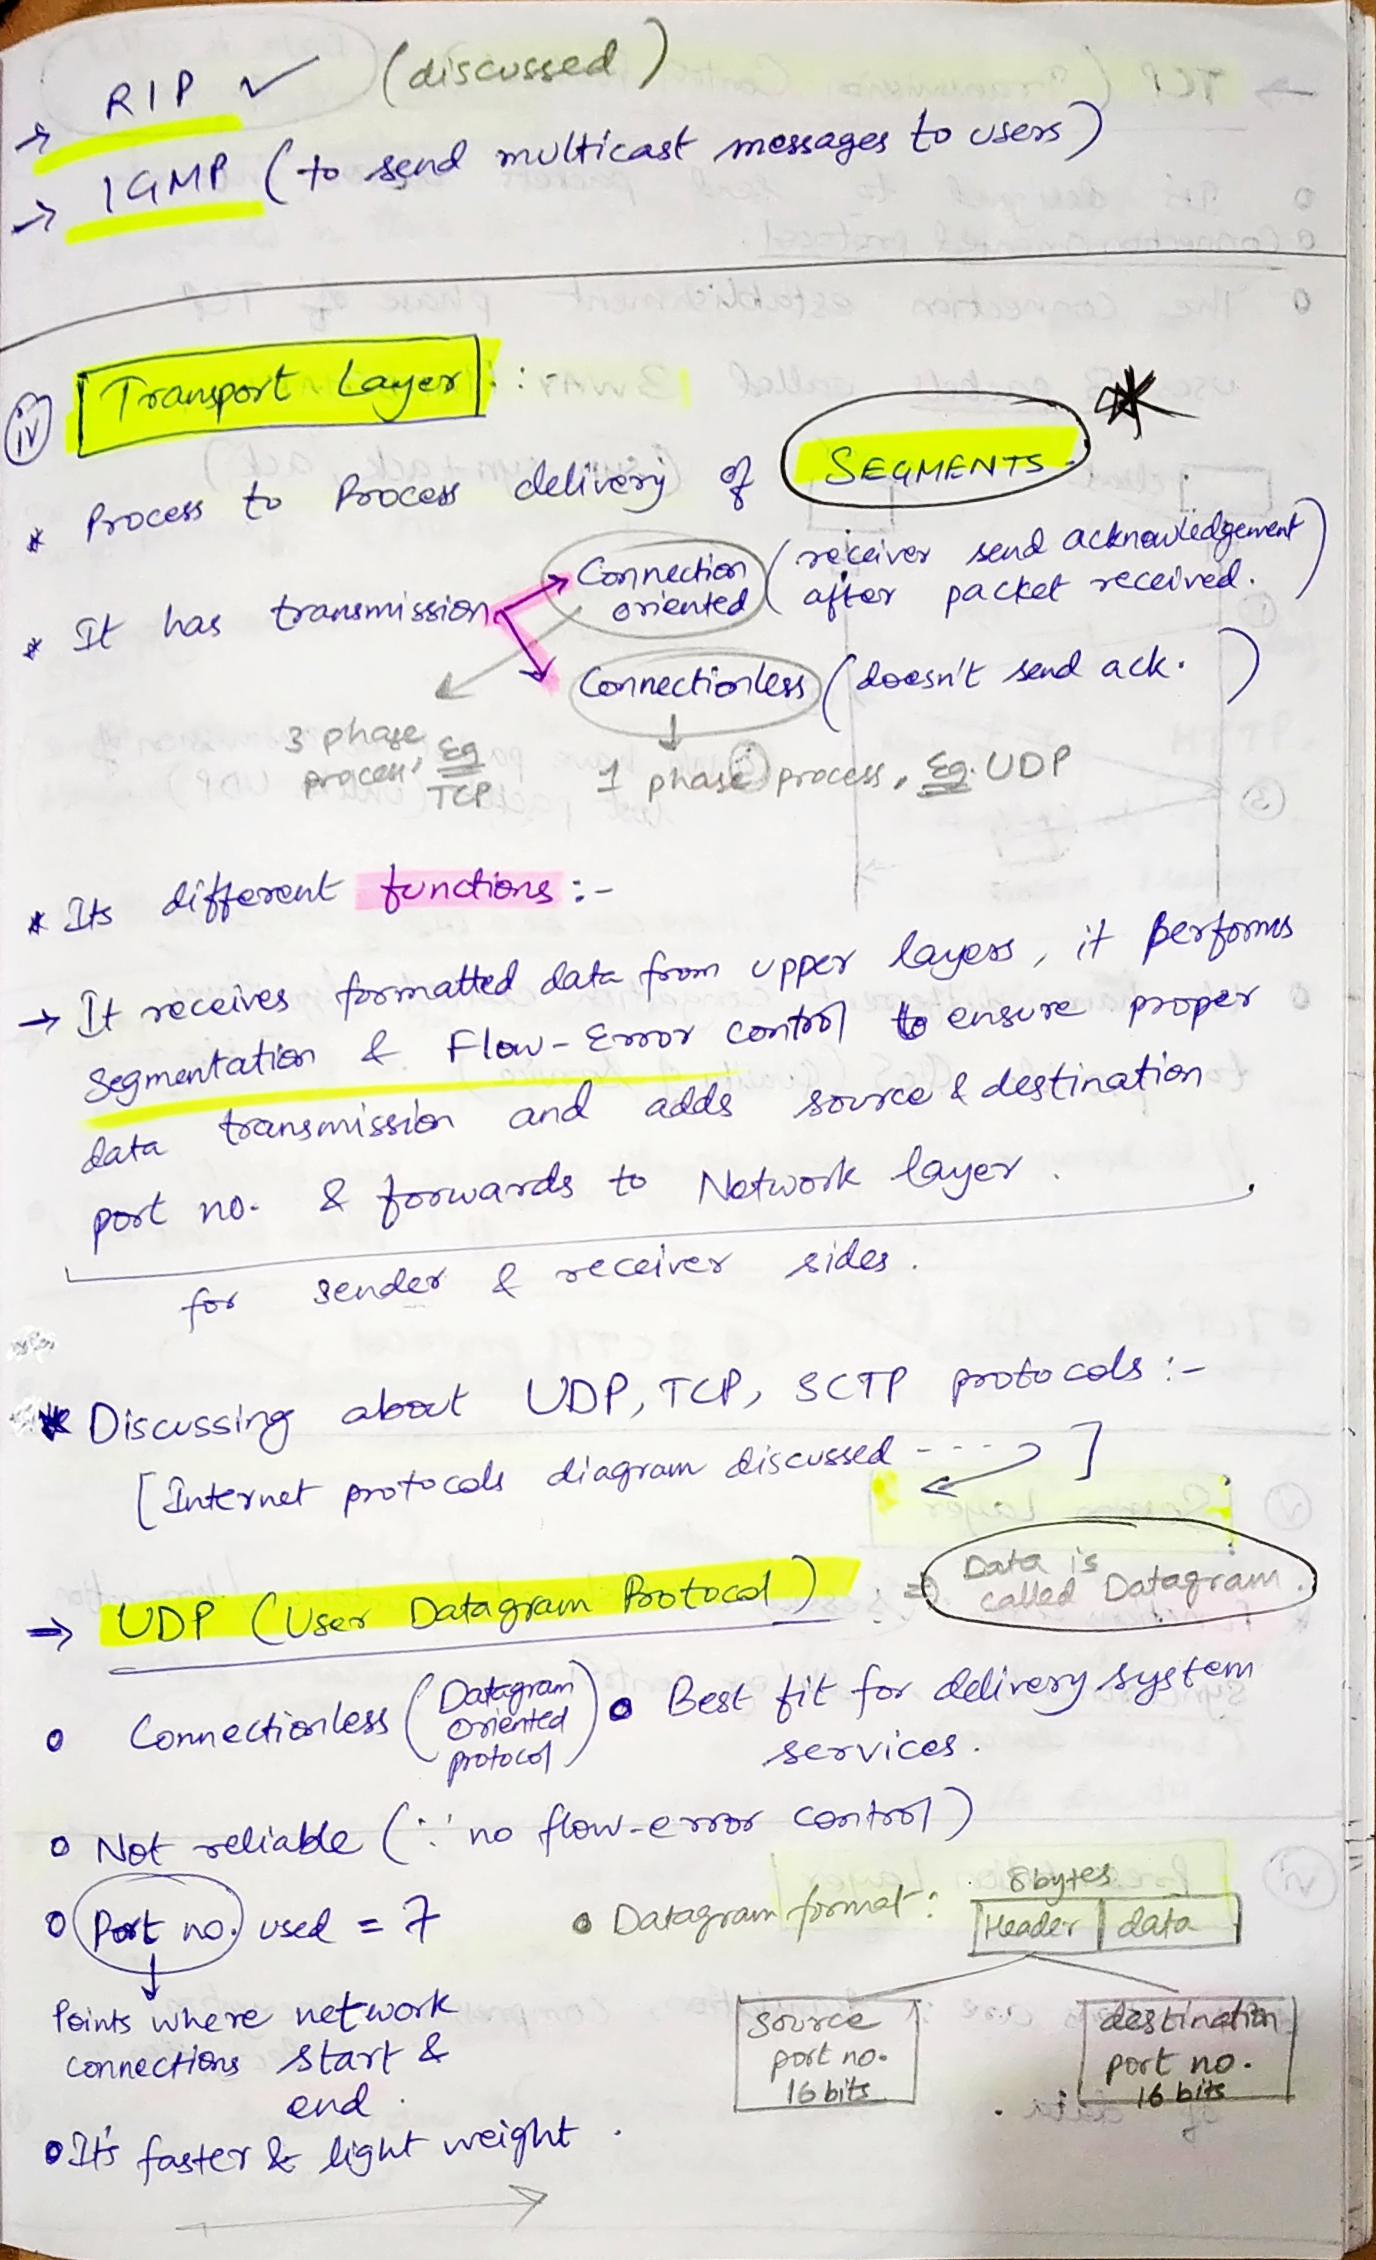 → RIP ✓ (discussed)
→ IGMP (to send multicast messages to users)
(iv) Transport Layer :-
* Process to Process delivery of SEGMENTS. *
* It has transmission
Connection oriented (receiver send acknowledgement after packet received.)
Connectionless (doesn't send ack.)
3 phase process, Eg TCP
1 phase process, Eg. UDP
* Its different functions :-
→ It receives formatted data from upper layers, it performs
segmentation & Flow-Error control to ensure proper
data transmission and adds source & destination
port no. & forwards to Network layer.
for sender & receiver sides.
* Discussing about UDP, TCP, SCTP protocols :-
[Internet protocols diagram discussed ---- ]
→ UDP (User Datagram Protocol) :⇒ Data is called Datagram.
o Connectionless (Datagram oriented protocol)
o Best fit for delivery system
services.
o Not reliable (∵ no flow-error control)
o Port no. used = 7
Points where network
connections start &
end.
• Datagram format:
8 bytes
Header | data
source
port no.
16 bits
destination
port no.
16 bits
o It's faster & light weight.